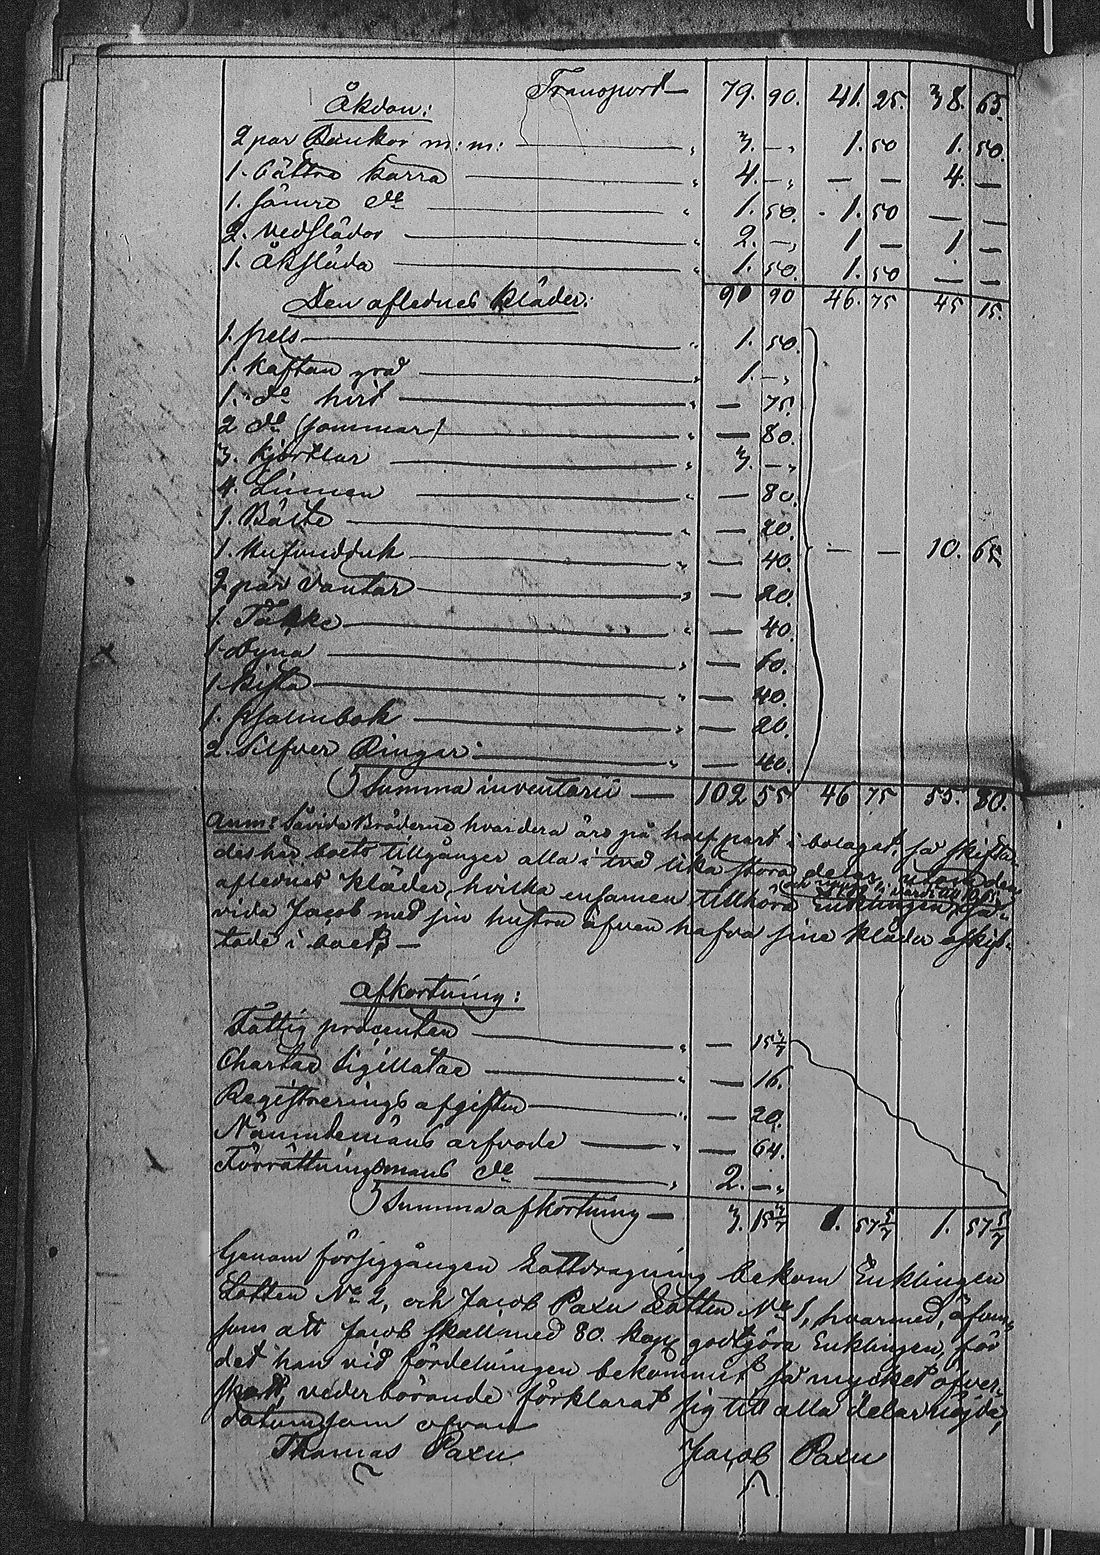 Transport — 79. 90. 41. 25. 38. 65.
Åkdon:
2 par Bankor m: m: — " 3. — " 1. 50 1. 50.
1. bättre Kärra — " 4. — " — — 4. —
1. sämre do — " 1. 50. 1. 50 — —
2. vedslädor — " 2. — " 1 — 1 —
1. Åksläda — " 1. 50. 1. 50 — —
90 90 46. 75 45 15.
Den aflednes Kläder:
1. pels — " 1. 50.
1. Kaftan grå — " 1. — "
1. do hvit — " — 75.
2 do (sommar) — " — 80.
3. Kjortlar — " 3. — "
4. Linnen — " — 80.
1. Bälte — " — 20.
1. Hufvudduk — " — 40. — — 10. 65
2 par Vantar — " — 20.
1. Täkke — " — 40.
1. Dyna — " — 60.
1. Kista — " — 40.
1. psalmbok — " — 20.
2. Silfver Ringar — " — 40.
Summa inventarii — 102 55 46 75 55. 80.
Anm: Såvida Bröderne hvardera äro på half part i bolaget, så skifta-
des här boets tillgångar alla i två lika stora delar, utom den
aflednes Kläder, hvilka ensamen tillhöra Enklingen, så-
vida Jacob med sin hustru äfven hafva sine kläder oskif-
tade i boet. —
Afkortning:
Fattig procenten — " — 15 3/7
Chartae Sigillatae — " — 16.
Registrerings afgiften — " — 20.
Nämndemäns arfvode — " — 64.
Förrättningsmans do — " 2. — "
Summa afkortning — 3. 15 3/7 1. 57 5/7 1. 57 5/7
Genom försiggången Lottdragning bekom Enklingen
Lotten No 2, och Jacob Paxu Lotten No 1, hvarmed, äfven-
som att Jacob skall med 80. kop. godtgöra Enklingen, för
det han vid fördelningen bekommit så mycket öfver-
skott, vederbörande förklarat sig till alla delar nöjda,
datum som ofvan
Thomas Paxu Jacob Paxu